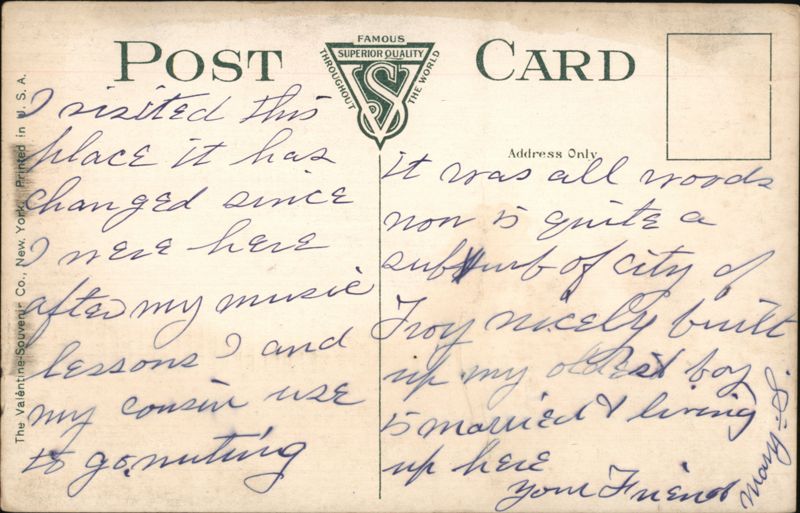 POST CARD
FAMOUS
SUPERIOR QUALITY
THROUGHOUT THE WORLD
VS
Address Only
The Valentine-Souvenir Co., New York. Printed in U. S. A.
I visited this
place it has
changed since
I were here
after my music
lessons I and
my cousin use
to go nuting
it was all woods
now is quite a
suburb of city of
Troy nicely built
up my oldest boy
is married & living
up here
Your Friend
Mary S.